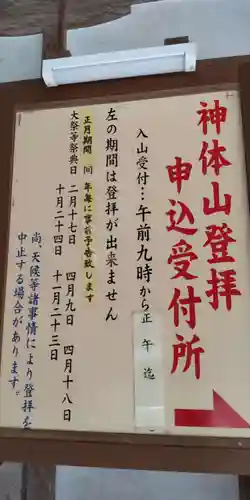 神体山登拝
申込受付所
入山受付…午前九時から正午迄
左の期間は登拝が出来ません
正月期間 年毎に事前予告致します
大祭等祭典日 二月十七日 四月九日 四月十八日
十月二十四日 十一月二十三日
尚、天候等諸事情により登拝を
中止する場合があります。